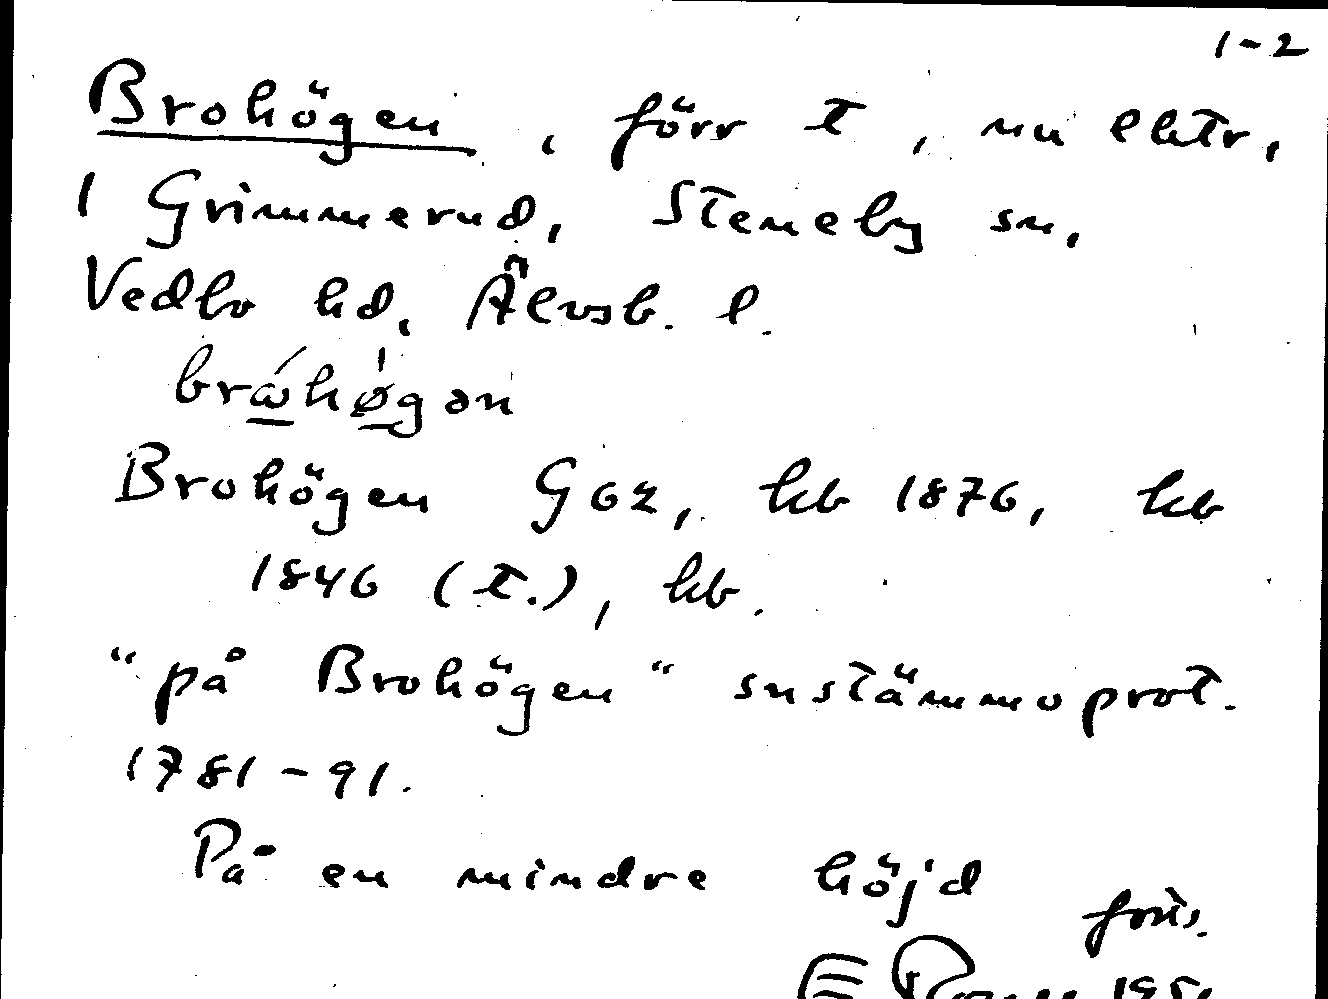 1-2
Brohögen, förr t, nu lhtr,
i Grimmerud, Steneby sn,
Vedbo hd, Älvsb. l.
brώhø̍gən
Brohögen G62, hb 1876, kb
1846 (t.), kb.
"på Brohögen" sustämmoprot.
1781-91.
På en mindre höjd
forts.